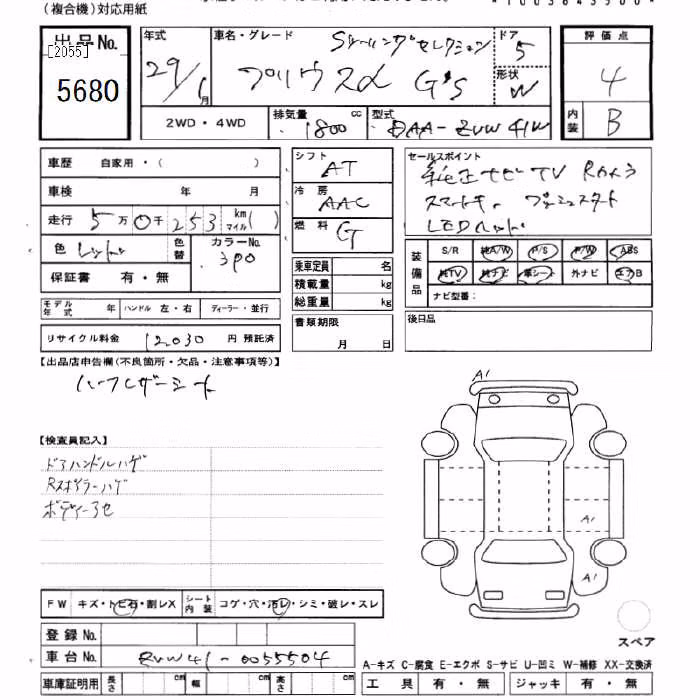 (複合機)対応用紙
出品No.
[2055]
5680
年式 29/1月
車名・グレード Sツーリングセレクション プリウスα G's
ドア 5
形状 W
2WD・4WD
排気量 1800 cc
型式 DAA-ZVW41W
評価点 4
内装 B
車歴 自家用・( )
車検 年 月
走行 5万0千253 km マイル( )
色 レッド 色替 カラーNo. 3P0
保証書 有・無
モデル年式 年 ハンドル 左・右 ディーラー・並行
リサイクル料金 12030円 預託済
シフト AT
冷房 AAC
燃料 G
乗車定員 名
積載量 kg
総重量 kg
書類期限 月 日
セールスポイント
純正ナビ TV Rカメラ
スマートキー プッシュスタート
LEDヘッド
装備品 S/R 純A/W P/S P/W ABS
純TV 純ナビ 革シート 外ナビ エアB
ナビ型番:
後日品
【出品店申告欄(不良箇所・欠品・注意事項等)】
ハーフレザーシート
【検査員記入】
ドアハンドルハゲ
Rスポイラーハゲ
ボディーアセ
A1
A1
A1
FW キズ・トビ石・割レX シート内装 コゲ・穴・汚レ・シミ・破レ・スレ
スペア
登録No.
車台No. ZVW41-0055504
A-キズ C-腐食 E-エクボ S-サビ U-凹ミ W-補修 XX-交換済
車庫証明用 長さ cm 幅 cm 高さ cm
工具 有・無 ジャッキ 有・無